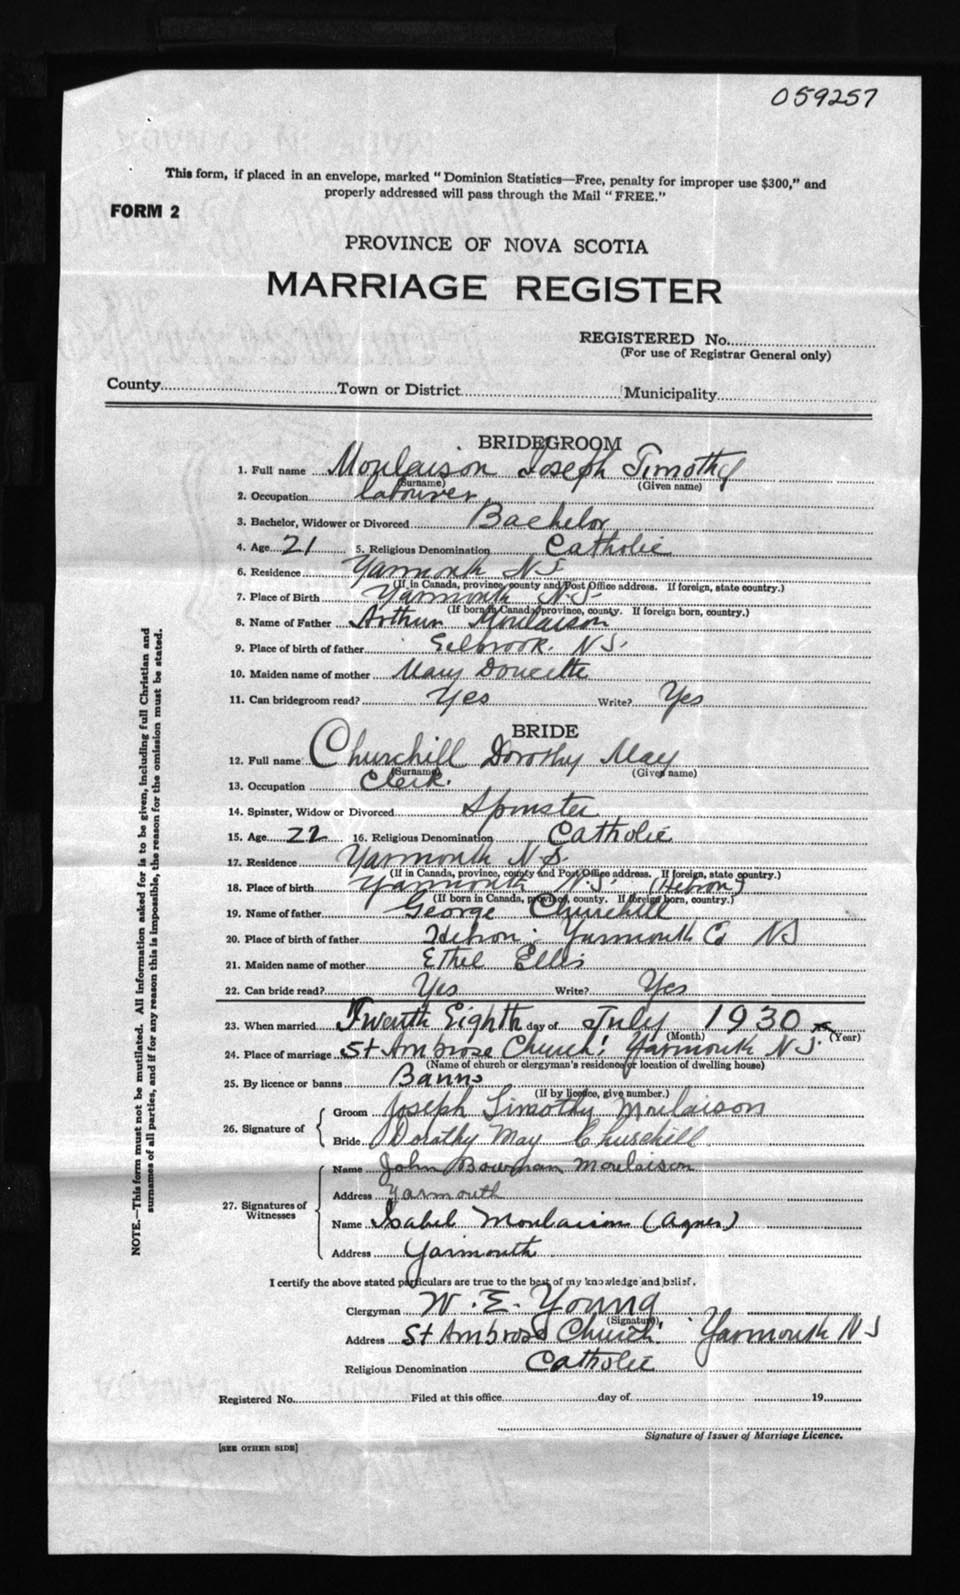 059257
This form, if placed in an envelope, marked "Dominion Statistics—Free, penalty for improper use $300," and
properly addressed will pass through the Mail "FREE."
FORM 2
PROVINCE OF NOVA SCOTIA
MARRIAGE REGISTER
REGISTERED No.
(For use of Registrar General only)
County Town or District Municipality
BRIDEGROOM
1. Full name Moulaison Joseph Timothy
(Surname) (Given name)
2. Occupation labourer
3. Bachelor, Widower or Divorced Bachelor
4. Age 21 5. Religious Denomination Catholic
6. Residence Yarmouth N.S.
(If in Canada, province, county and Post Office address. If foreign, state country.)
7. Place of Birth Yarmouth N.S.
(If born in Canada, province, county. If foreign born, country.)
8. Name of Father Arthur Moulaison
9. Place of birth of father Eelbrook. N.S.
10. Maiden name of mother Mary Doucette
11. Can bridegroom read? Yes Write? Yes
BRIDE
12. Full name Churchill Dorothy May
(Surname) (Given name)
13. Occupation Clerk.
14. Spinster, Widow or Divorced Spinster
15. Age 22 16. Religious Denomination Catholic
17. Residence Yarmouth N.S.
(If in Canada, province, county and Post Office address. If foreign, state country.)
18. Place of birth Yarmouth N.S. (Hebron)
(If born in Canada, province, county. If foreign born, country.)
19. Name of father George Churchill
20. Place of birth of father Hebron; Yarmouth Co NS
21. Maiden name of mother Ethel Ellis
22. Can bride read? Yes Write? Yes
23. When married Twenth Eighth day of July 1930
(Month) (Year)
24. Place of marriage St Ambrose Church! Yarmouth N.S.
(Name of church or clergyman's residence or location of dwelling house)
25. By licence or banns Banns
(If by licence, give number.)
26. Signature of Groom Joseph Timothy Moulaison
Bride Dorathy May Churchill
27. Signatures of Witnesses Name John Bowman Moulaison
Address Yarmouth
Name Isabel Moulaison (Agnes)
Address Yarmouth
I certify the above stated particulars are true to the best of my knowledge and belief.
Clergyman W. E. Young
(Signature)
Address St Ambrose Church! Yarmouth N S
Religious Denomination Catholic
Registered No. Filed at this office day of 19
Signature of Issuer of Marriage Licence.
[SEE OTHER SIDE]
NOTE.—This form must not be mutilated. All information asked for is to be given, including full Christian and
surnames of all parties, and if for any reason this is impossible, the reason for the omission must be stated.